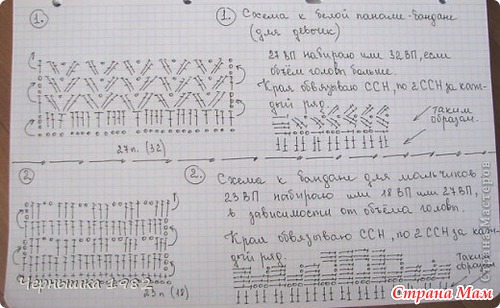 1.
27 п. (32)
1. Схема к белой панаме-бандане
(для девочек)
27 ВП набираю или 32 ВП, если
объём головы больше.
Края обвязываю ССН, по 2 ССН за каж-
дый ряд.
таким
образом.
2
23 п (18)
2. Схема к бандане для мальчиков
23 ВП набираю или 18 ВП или 27 ВП,
в зависимости от объёма головы.
Края обвязываю ССН, по 2 ССН за каж-
дый ряд.
Таким
образом
Чернышка 1982
Страна Мам